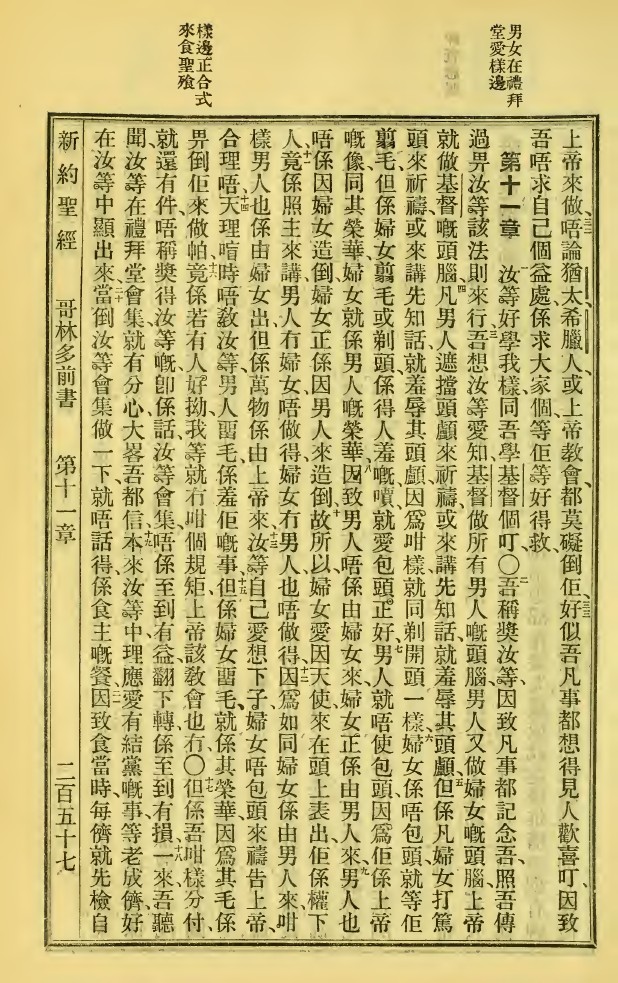 男女在禮拜
堂愛樣邊
樣邊正合式
來食聖飱
上帝來做、唔論猶太希臘人、或上帝教會、都莫礙倒佢、三三好似吾凡事都想得見人歡喜叮、因致
吾唔求自己個益處、係求大家個、等佢等好得救、
第十一章 一汝等好學我樣、同吾學基督個叮、〇二吾稱獎汝等、因致凡事都記念吾、照吾傳
過畀汝等該法則來行、三吾想汝等愛知、基督做所有男人嘅頭腦、男人又做婦女嘅頭腦、上帝
就做基督嘅頭腦、四凡男人遮擋頭顱來祈禱、或來講先知話、就羞辱其頭顱、五但係凡婦女打篤
頭來祈禱、或來講先知話、就羞辱其頭顱、因爲咁樣就同剃開頭一樣、六婦女係唔包頭、就等佢
翦毛、但係婦女翦毛或剃頭、係得人羞嘅嘳、就愛包頭正好、七男人就唔使包頭、因爲佢係上帝
嘅像、同其榮華、婦女就係男人嘅榮華、八因致男人唔係由婦女來、婦女正係由男人來、九男人也
唔係因婦女造倒、婦女正係因男人來造倒、十故所以婦女愛因天使來在頭上表出佢係權下
人、十一竟係照主來講、男人冇婦女唔做得、婦女冇男人也唔做得、十二因爲如同婦女係由男人來、咁
樣男人也係由婦女出、但係萬物係由上帝來、十三汝等自己愛想下子、婦女唔包頭來禱告上帝、
合理唔、十四天理喧時唔敎汝等、男人畱毛係羞佢嘅事、十五但係婦女畱毛、就係其榮華、因爲其毛係
畀倒佢來做帕、十六竟係若有人好拗、我等就冇咁個規矩、上帝該教會也冇、〇十七但係吾咁樣分付、
就還有件唔稱獎得汝等嘅、卽係話汝等會集、唔係至到有益、翻下轉係至到有損、十八一來吾聽
聞、汝等在禮拜堂會集、就有分心、大畧吾都信、十九本來汝等中理應愛有結黨嘅事、等老成儕、好
在汝等中顯出來、二十當倒汝等會集做一下、就唔話得係食主嘅餐、二一因致食當時、每儕就先檢自
新約聖經 哥林多前書 第十一章 二百五十七